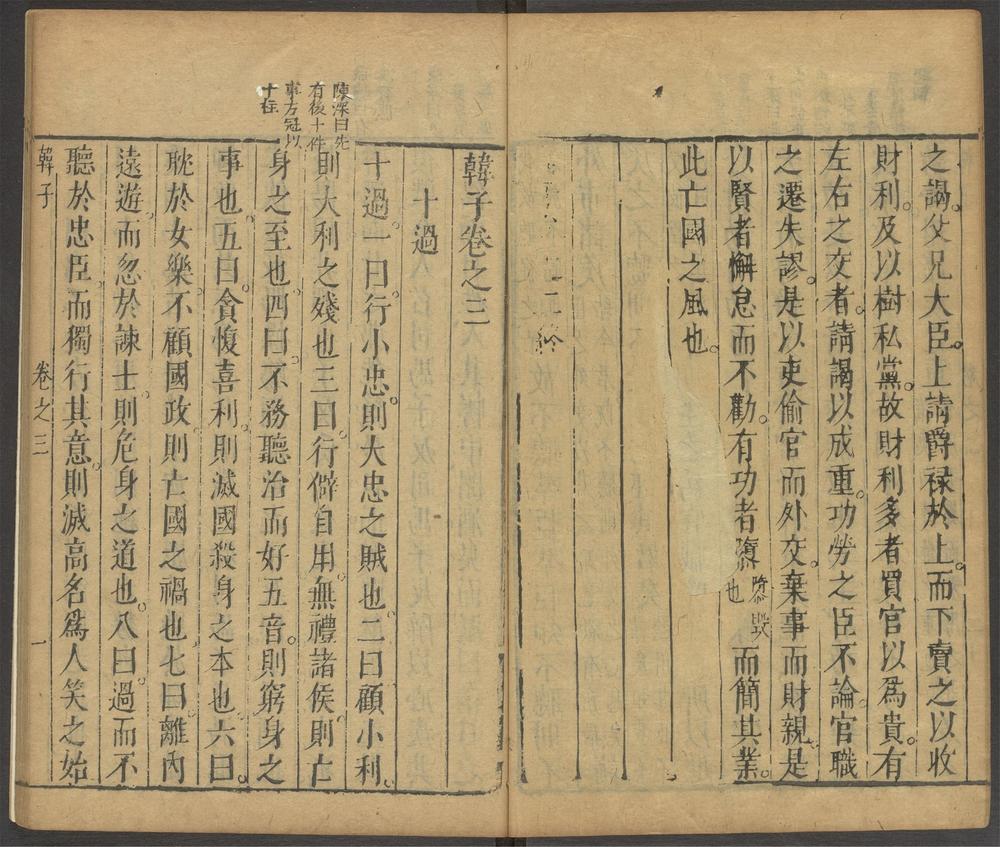 之謁父兄大臣上請爵祿於上而下賣之以收
財利及以樹私黨故財利多者買官以為貴有
左右之交者請謁以成重功勞之臣不論官職
之遷失謬是以吏偷官而外交棄事而財親是
以賢者懈怠而不勸有功者隳隳毀也而簡其業
此亡國之風也
二終
韓子卷之三
十過
陳深曰先
有後十件
事方冠以
十過一曰行小忠則大忠之賊也二曰顧小利
則大利之殘也三曰行僻自用無禮諸侯則亡
身之至也四曰不務聽治而好五音則窮身之
事也五曰貪愎喜利則滅國殺身之本也六曰
耽於女樂不顧國政則亡國之禍也七曰離內
遠遊而忽於諫士則危身之道也八曰過而不
聽於忠臣而獨行其意則滅高名為人笑之始
韓子 卷之三 一